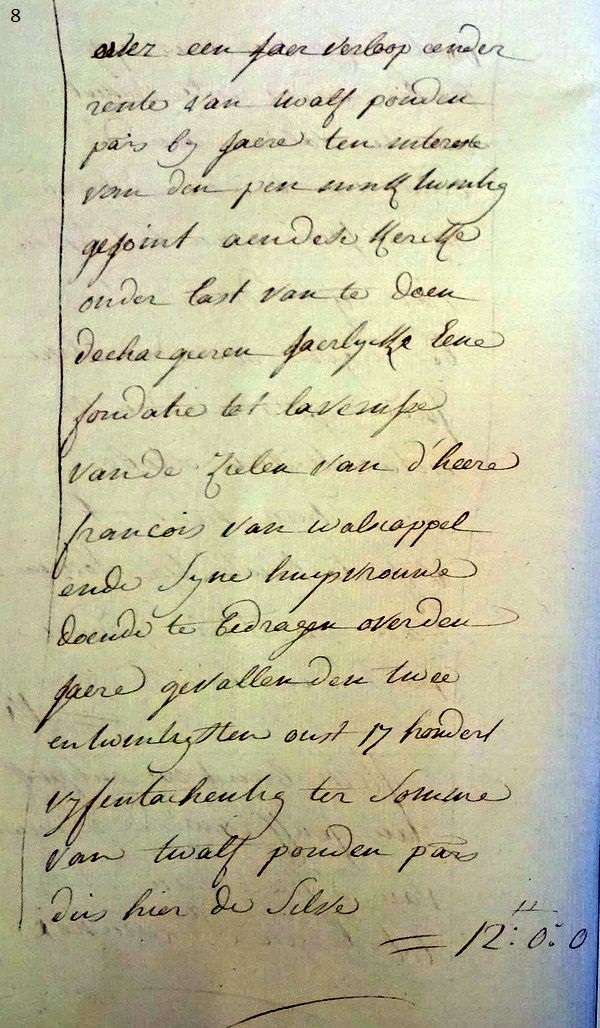 8
over een jaer verloop ender
rente van twalf ponden
pars by jaere ten interesse
van den pen ninck twintig
gejoint aendese kercke
onder last van te doen
dechargieren jaerlyckx Eene
fondatie tot lavenisse
vande Zielen van d'heere
francois van walscappel
ende Syne huysvrouwe
doende te bedragen over den
jaere gevallen den twee
entwintigsten oust 17 hondert
vyfentachentig ter Somme
van twalf ponden pars
dus hier de Selve
12: 0: 0